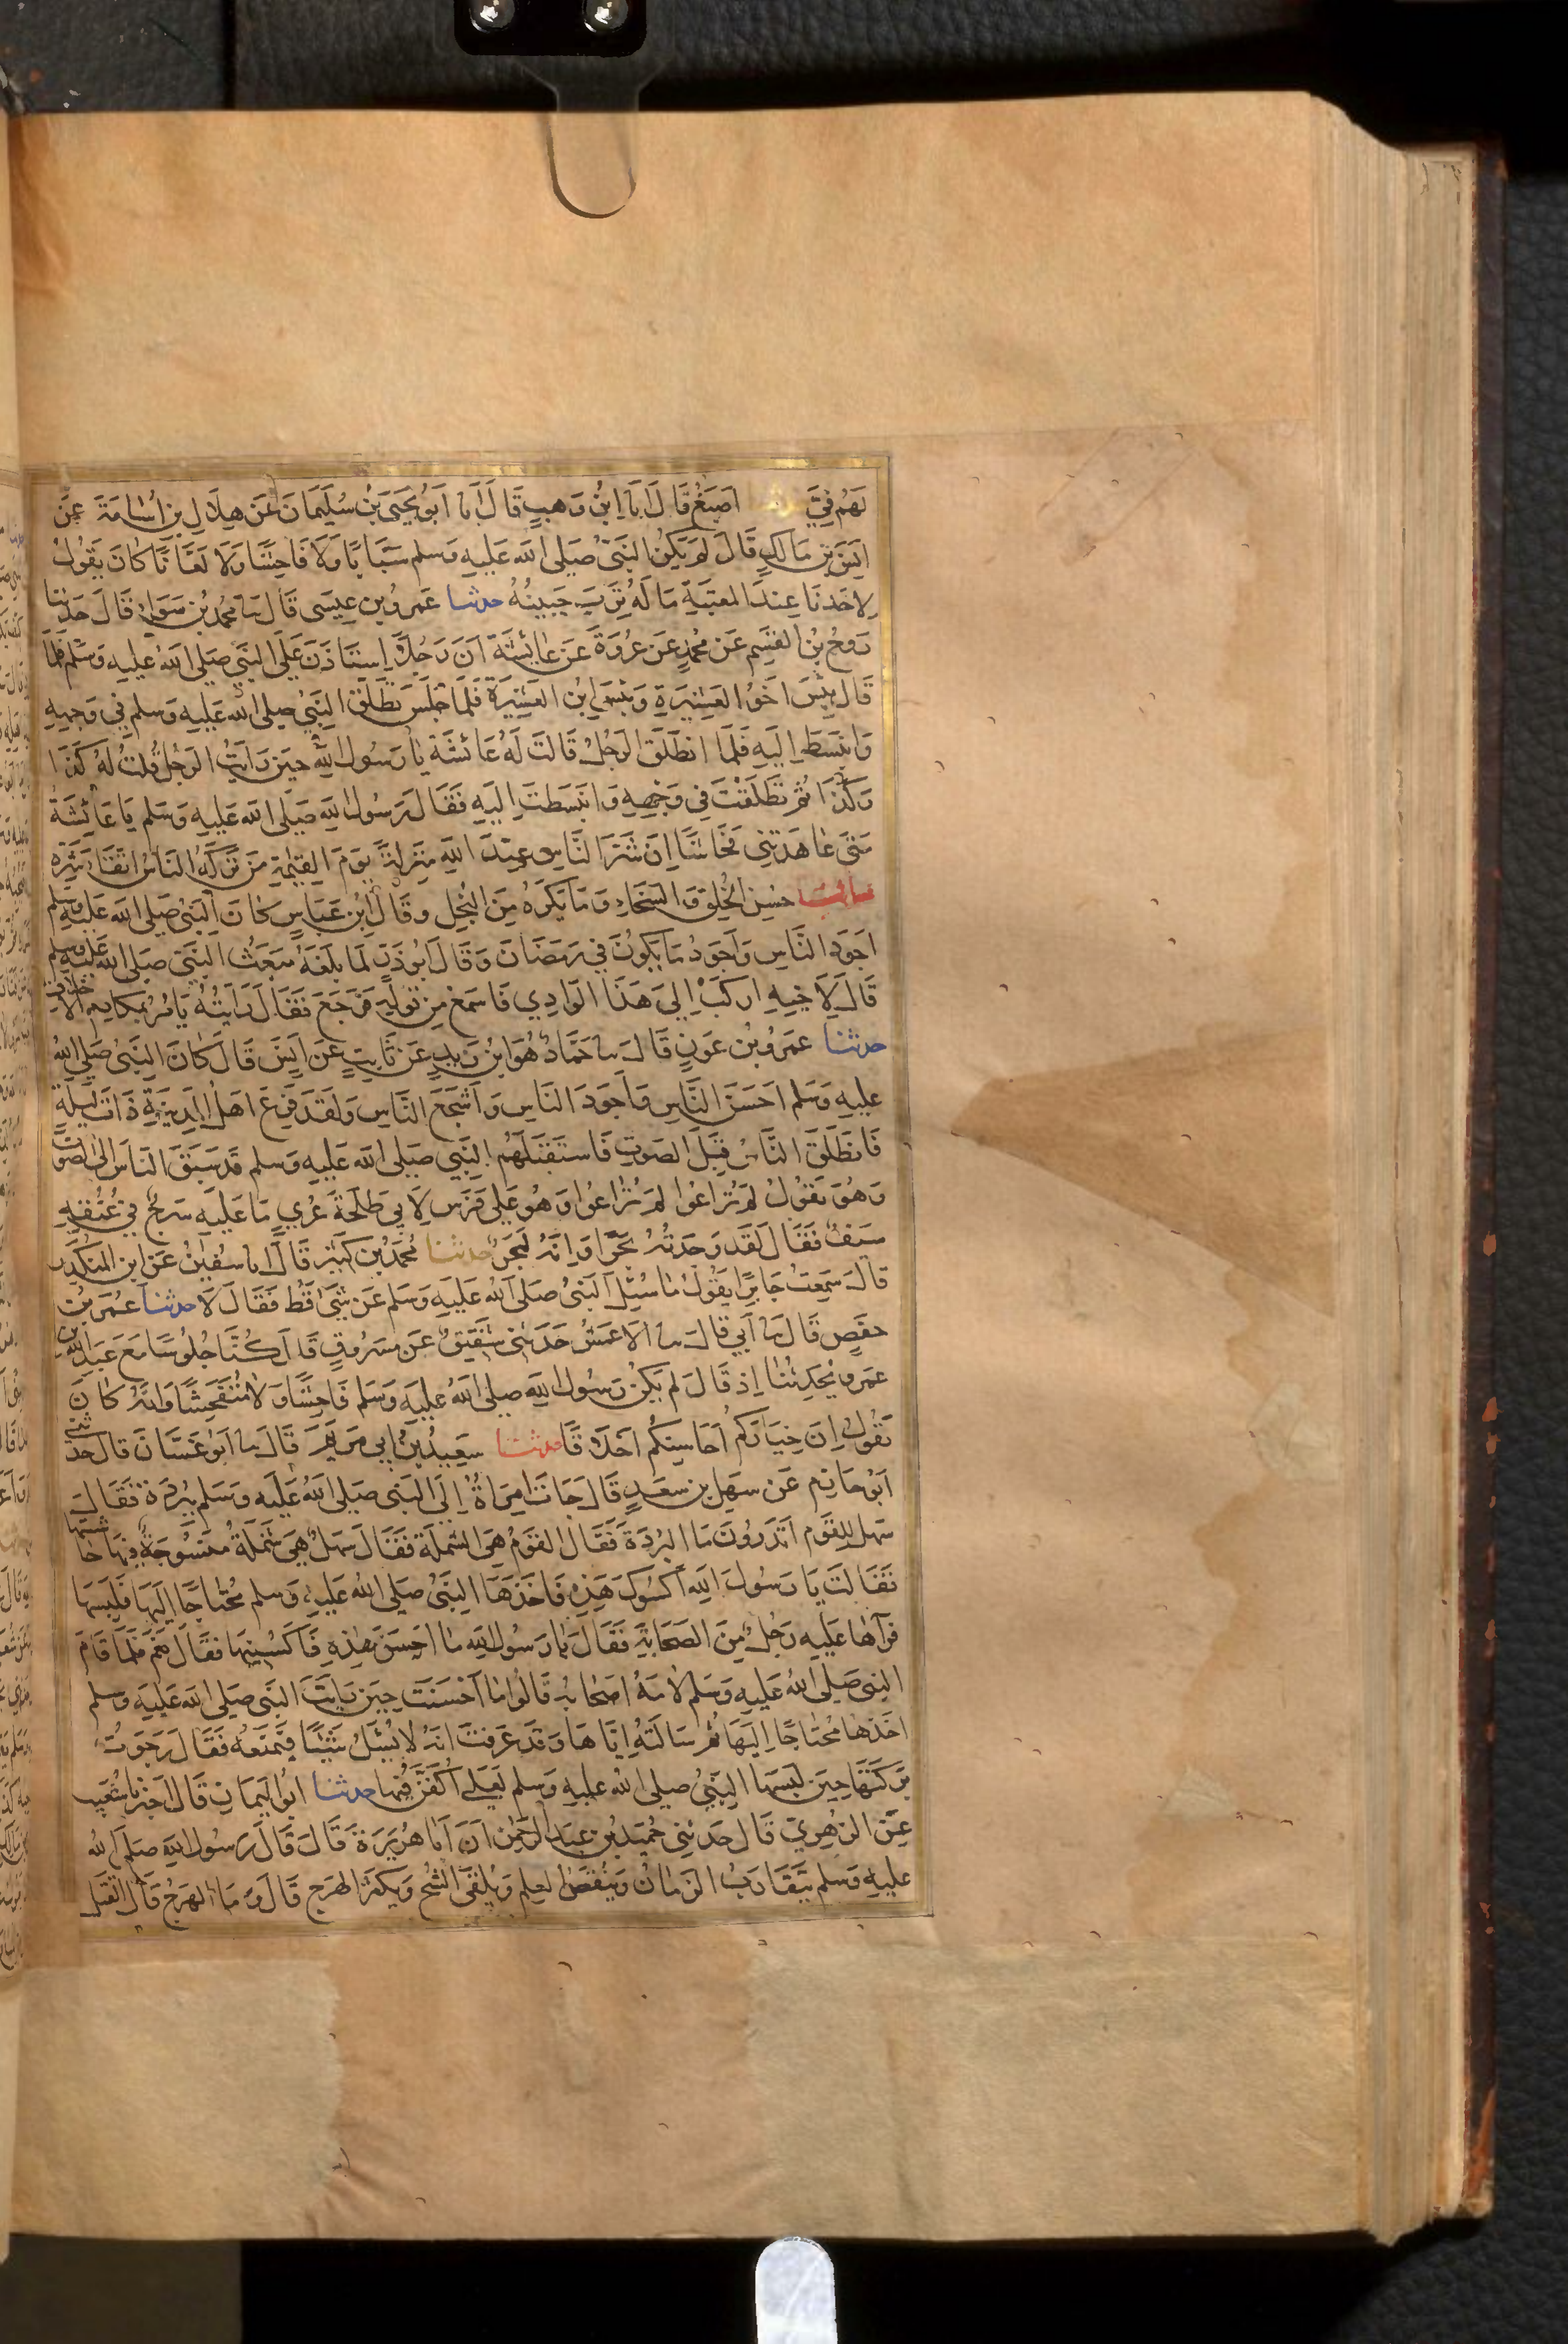 لَهُم فِيَّ حدثنا اَصبَغُ قَالَ اَنَا اِبنُ وَهبٍ قَالَ اَنَا اَبُو يَحيَى بنُ سُلَيمَانَ عَن هِلَالِ بنِ اُسَامَةَ عَن
اَنَسِ بنِ مَالِكٍ قَالَ لَم يَكُنِ النَبِيُّ صَلى الله عَلَيهِ وَسلم سَبَّابًا وَلَا فَاحِشًا وَلَا لَعَّانًا كَانَ يَقُولُ
لِاَحَدِنَا عِندَ المعتَبَةِ مَا لَهُ تَرِبَ جَبِينُهُ حدثنا عَمرُو بن عِيسَى قَالَ نا محمد بن سَوَاءٍ قَالَ حَدثنا
رَوحُ بنُ القٰسِمِ عَن مُحمدٍ عَن عُروَةَ عَن عَائِشَةَ اَنَّ رَجُلًا اِستَاذَنَ عَلَى النَبِيِّ صَلى الله عليهِ وَسَلم فَلَمَّا
قَالَ بِئسَ اَخُو العَشِيرَةِ وَبِئسَ اِبن العَشِيرَةِ فَلَمَّا جَلَسَ تَطَلَّقَ النَبِيُّ صلى الله عَلَيهِ وَسلم فِي وَجهِهِ
وَانبَسَطَ اِلَيهِ فَلَمَّا انطَلَقَ الرَجُلُ قَالَت لَهُ عَائشَة يَا رَسُولَ الله حِينَ رَاَيتَ الرَجُلَ قُلتَ لَهُ كَذَا
وَكَذَا ثُمَّ تَطَلَّقتَ فِي وَجهِهِ وَانبَسَطتَ اِلَيهِ فَقَالَ رَسُولُ الله صَلَى الله عَلَيهِ وَسَلم يَا عَائِشَةُ
مَتَى عَاهَدتِنِي فَحَّاشًا اِنَّ شَرَّ النَاسِ عِندَ اللهِ مَنزِلَةً يَومَ القِيٰمَةِ مَن تَرَكَهُ النَاسُ اتِّقَاءَ شَرِّهِ
باب حُسنِ الخُلقِ وَالسَخَاءِ وَمَا يُكرَهُ مِنَ البُخلِ وقَالَ ابن عَبَاسٍ كَانَ النَبِيُّ صَلى الله عَلَيهِ وَسلم
اَجوَدَ النَاسِ وَاَجوَدُ مَا يَكُونُ فِي رَمَضَانَ وَقَالَ اَبُو ذَرٍّ لَمَّا بَلَغَهُ مَبعَثُ النَبِيِّ صَلى الله عَلَيهِ وسلم
قَالَ لِاَخِيهِ اركَب اِلَى هَذَا الوَادِي فَاسمَع مِن قَولِهِ فَرَجَعَ فَقَالَ رَاَيتُهُ يَامُرُ بِمَكَارِمِ الاَخلَاقِ
حدثنا عَمرُو بن عَونٍ قَالَ نا حَمَّادٌ هُوَ ابنُ زَيدٍ عَن ثَابِتٍ عَن اَنَسٍ قَالَ كَانَ النَبِيُّ صَلى الله
عليهِ وَسَلم اَحسَنَ النَاسِ وَاَجوَدَ النَاسِ وَاَشجَعَ النَاسِ وَلَقَد فَزِعَ اَهلُ المَدِينَةِ ذَاتَ لَيلَةٍ
فَانطَلَقَ النَاسُ قِبَلَ الصَوتِ فَاستَقبَلَهُم النَبِيُّ صَلى الله عَلَيهِ وَسلم قَد سَبَقَ النَاسَ اِلى الصَوتِ
وَهُوَ يَقُولُ لَم تُرَاعُوا لَم تُرَاعُوا وَهُوَ عَلَى فَرَسٍ لِاَبِي طَلحَةَ عُريٍ مَا عَلَيهِ سَرجٌ فِي عُنُقِهِ
سَيفٌ فَقَالَ لَقَد وَجَدتُهُ بَحرًا اَو اِنَّهُ لَبَحرٌ حدثنا مُحمَدُ بن كَثِيرٍ قَالَ اَنا سُفيٰنُ عَن ابنِ المُنكَدِرِ
قَالَ سَمِعتُ جَابِرًا يَقُولُ مَا سُئِلَ النَبِيُّ صَلى الله عَلَيهِ وَسَلم عَن شَيءٍ قَطُّ فَقَالَ لَا حدثنا عُمَرُ بنُ
حَفصٍ قَالَ نا اَبِي قَالَ نا الاَعمَشُ حَدَثَنِي شَقِيقٌ عَن مَسرُوقٍ قَالَ كُنَّا جُلُوسًا مَعَ عَبدِ اللهِ بن
عَمرٍو يُحَدِّثُنَا اِذ قَالَ لَم يَكُن رَسُولُ اللهِ صَلى الله عَلَيهِ وَسَلم فَاحِشًا وَلَا مُتَفَحِّشًا وَاِنَّهُ كَانَ
يَقُولُ اِنَّ خِيَارَكُم اَحَاسِنُكُم اَخلَاقًا حدثنا سَعِيدُ بنُ اَبِي مَريَمَ قَالَ نا اَبُو غَسَّانَ قَالَ حَدثني
اَبُو حَازِمٍ عَن سَهلِ بن سَعدٍ قَالَ جَاءَت اِمرَاَةٌ اِلَى النَبِيِّ صَلى الله عَلَيهِ وَسَلم بِبُردَةٍ فَقَالَ
سَهلٌ لِلقَومِ اَتَدرُونَ مَا البُردَةُ فَقَالَ القَومُ هِيَ الشَملَةُ فَقَالَ سَهلٌ هِيَ شَملَةٌ مَنسُوجَةٌ فِيهَا حَاشِيَتُهَا
فَقَالَت يَا رَسُولَ اللهِ اَكسُوكَ هَذِهِ فَاَخَذَهَا النَبِيُّ صَلى الله عَلَيهِ وَسلم مُحتَاجًا اِلَيهَا فَلَبِسَهَا
فَرَآهَا عَلَيهِ رَجُلٌ مِنَ الصَحَابَةِ فَقَالَ يَا رَسُولَ اللهِ مَا اَحسَنَ هٰذِهِ فَاكسُنِيهَا فقَالَ نَعَم فَلَمَّا قَامَ
النبِيُّ صَلى الله عَلَيهِ وَسلم لَامَهُ اَصحَابُهُ قَالُوا مَا اَحسَنتَ حِينَ رَاَيتَ النَبِيَّ صَلى الله عَلَيهِ وسلم
اَخَذَهَا مُحتَاجًا اِلَيهَا ثُمَّ سَاَلتَهُ اِيَّاهَا وَقَد عَرَفتَ اَنَّهُ لَا يُسئَلُ شَيئًا فَيَمنَعَه فَقَالَ رَجَوتُ
بَرَكَتَهَا حِينَ لَبِسَهَا النَبِيُّ صَلى الله عليهِ وسلم لَعَلِّي اُكَفَّنُ فِيهَا حدثنا اَبُو اليَمَانِ قَالَ اَخبَرَنا شُعَيب
عَنِ الزُهرِيِّ قَالَ حَدثنِي حُمَيدُ بن عَبدِ الرَحمٰنِ اَنَّ اَبَا هُرَيرَةَ قَالَ قَالَ رَسُولُ اللهِ صَلَى الله
عليهِ وَسلم يَتَقَارَبُ الزَمَانُ وَيَنقُصُ العِلم وَيُلقَى الشُحُّ وَيَكثُرُ الهَرج قَالُوا وَمَا الهَرجُ قَالَ القَتلُ